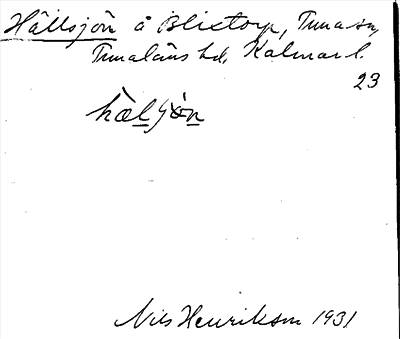 Hällsjön å Blixtorp, Tuna sn,
Tunaläns hd, Kalmar l.
23
hæljön
Nils Henrikson 1931